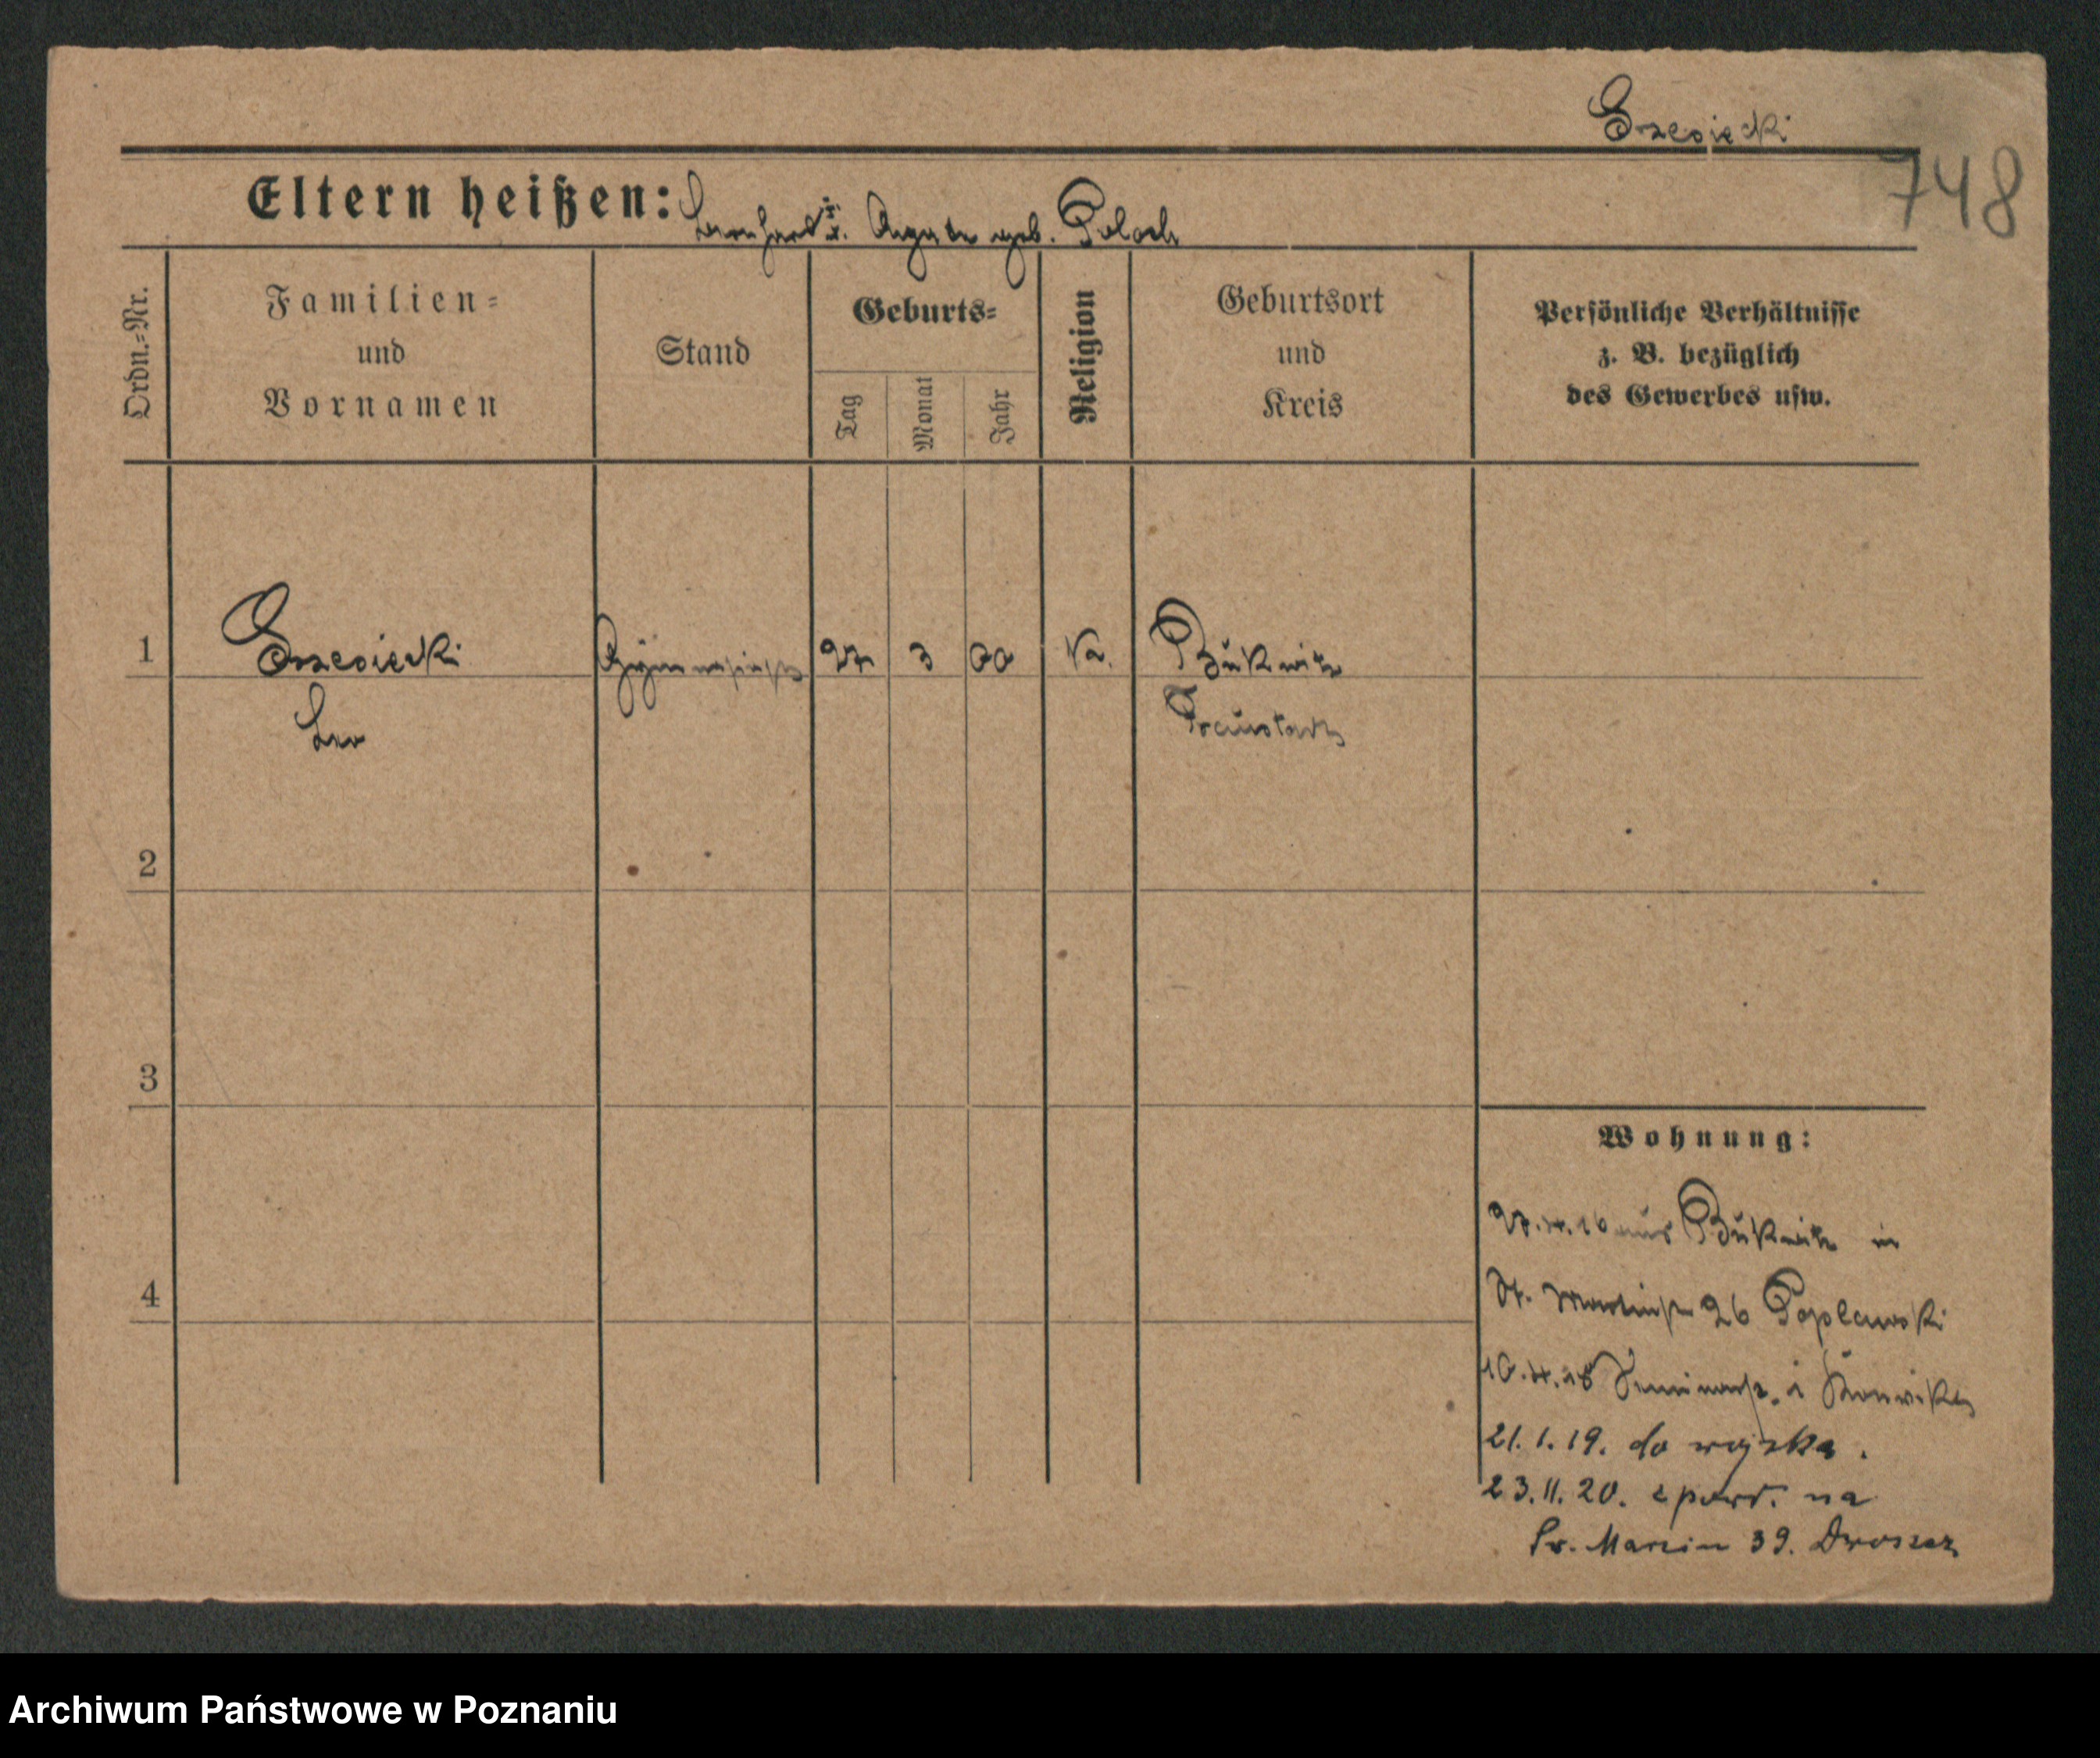 Grzesiecki
748
Eltern heißen: u. Agate geb. Poloch
Ordn.=Nr.
Familien=
und
Vornamen
Stand
Geburts=
Tag
Monat
Jahr
Religion
Geburtsort
und
Kreis
Persönliche Verhältnisse
z. B. bezüglich
des Gewerbes usw.
1 Grzesiecki 3 00 Ka. Bukwitz
Leo Fraustadt
2
3
4
Wohnung:
aus Bukwitz in
St. Martinstr 26 Poplawski
10.4.18
21.1.19. do wojska.
23.11.20. z powr. na
Św. Marcin 39.
Archiwum Państwowe w Poznaniu